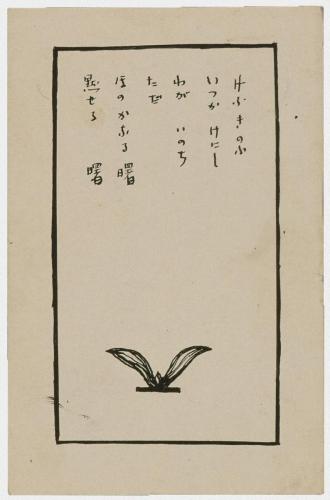 けふきのふ
いつか けにし
わが いのち
ただ
ほのかなる 曙
黙せる 曙